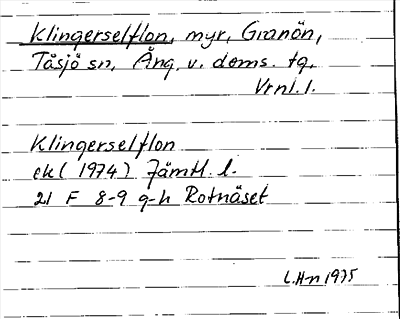 Klingerselflon, myr, Granön,
Tåsjö sn, Ång. v. doms. tg.
Vrnl. l.
Klingerselflon
ek (1974) Jämtl. l.
21 F 8-9 g-h Rotnäset
L.Hn 1975